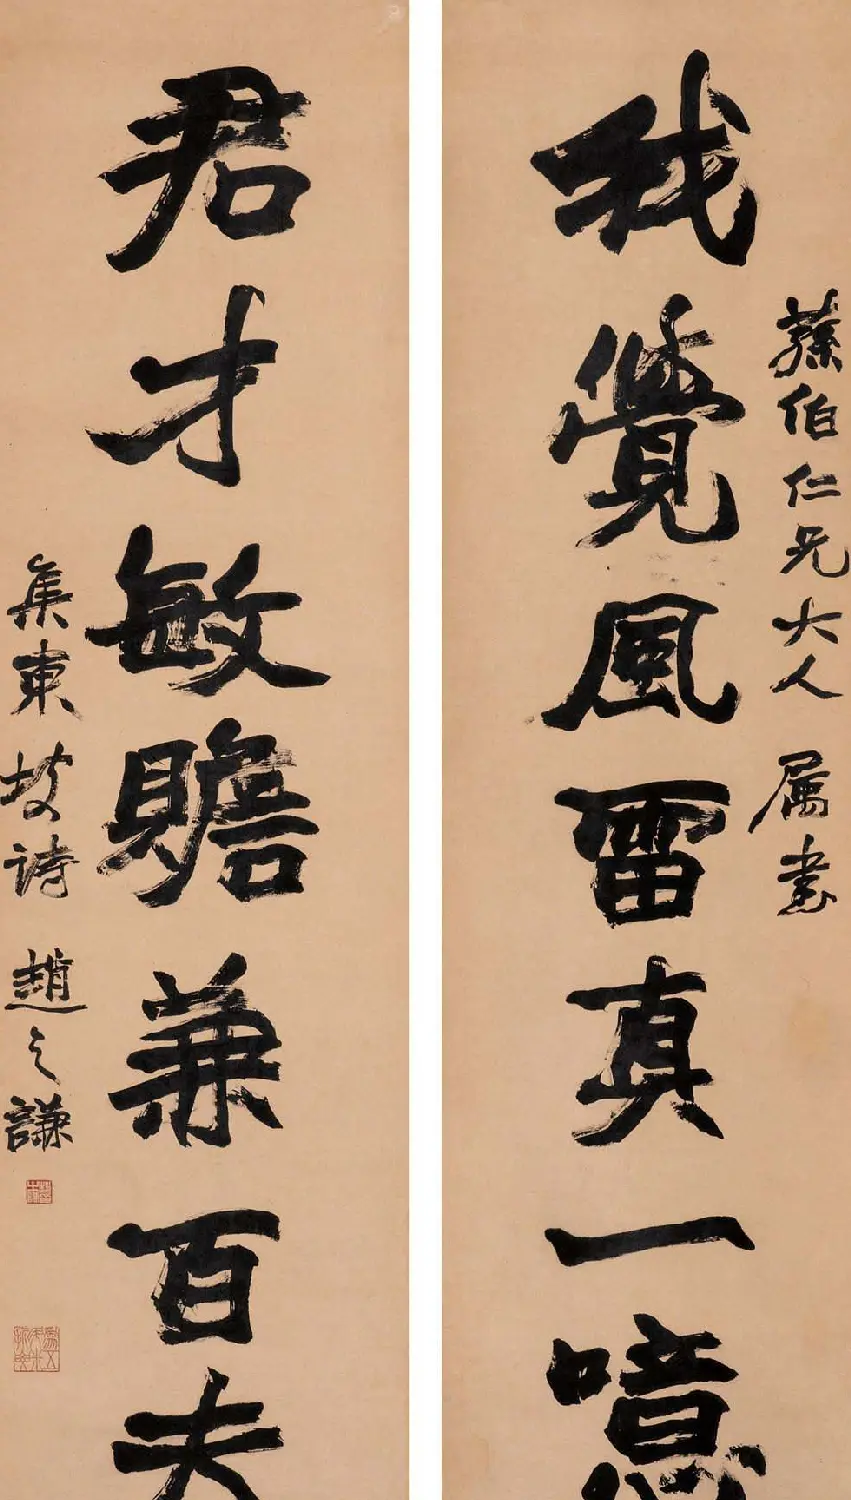 蓀伯仁兄大人 属書
我覺風雷真一噫
君才敏贍兼百夫
集東坡詩 趙之謙